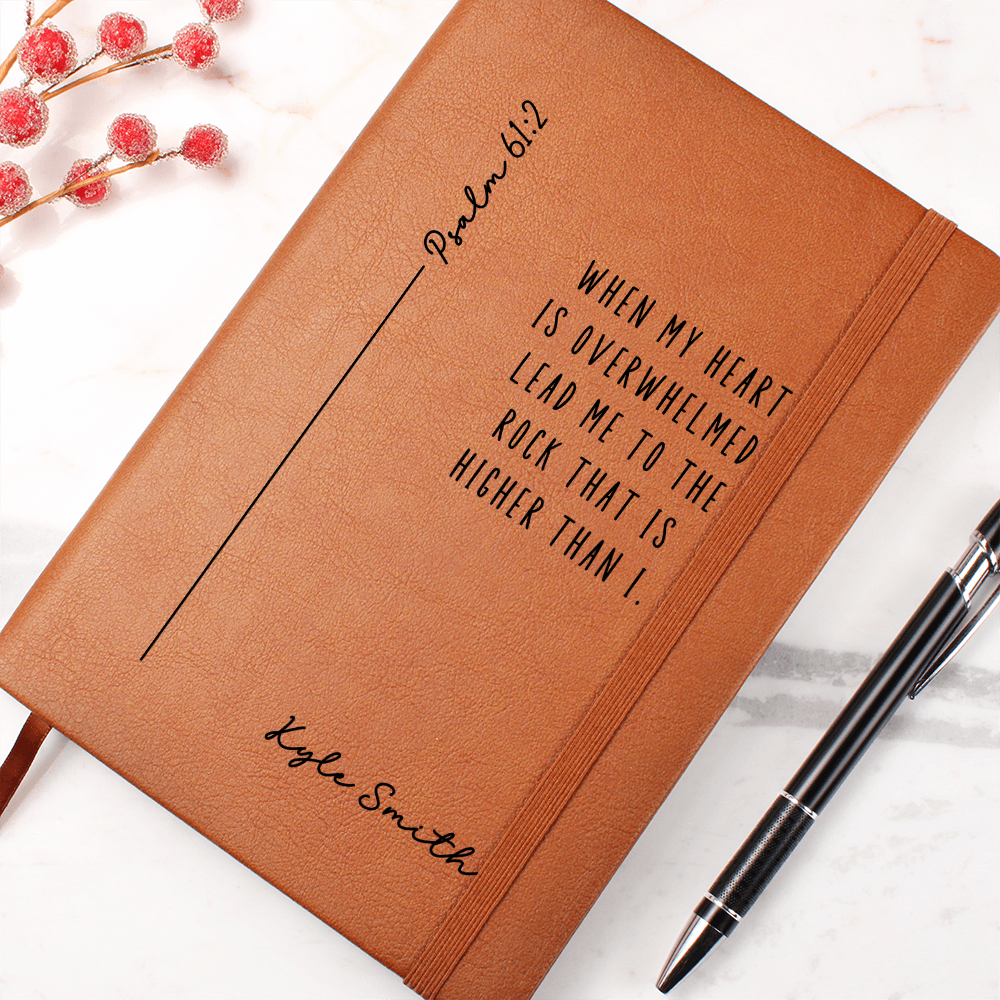 Psalm 61:2
WHEN MY HEART
IS OVERWHELMED
LEAD ME TO THE
ROCK THAT IS
HIGHER THAN I.
Kyle Smith